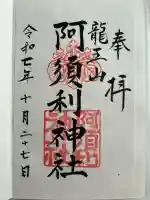 奉拝
龍王山
阿須利神社
令和七年十月二十七日